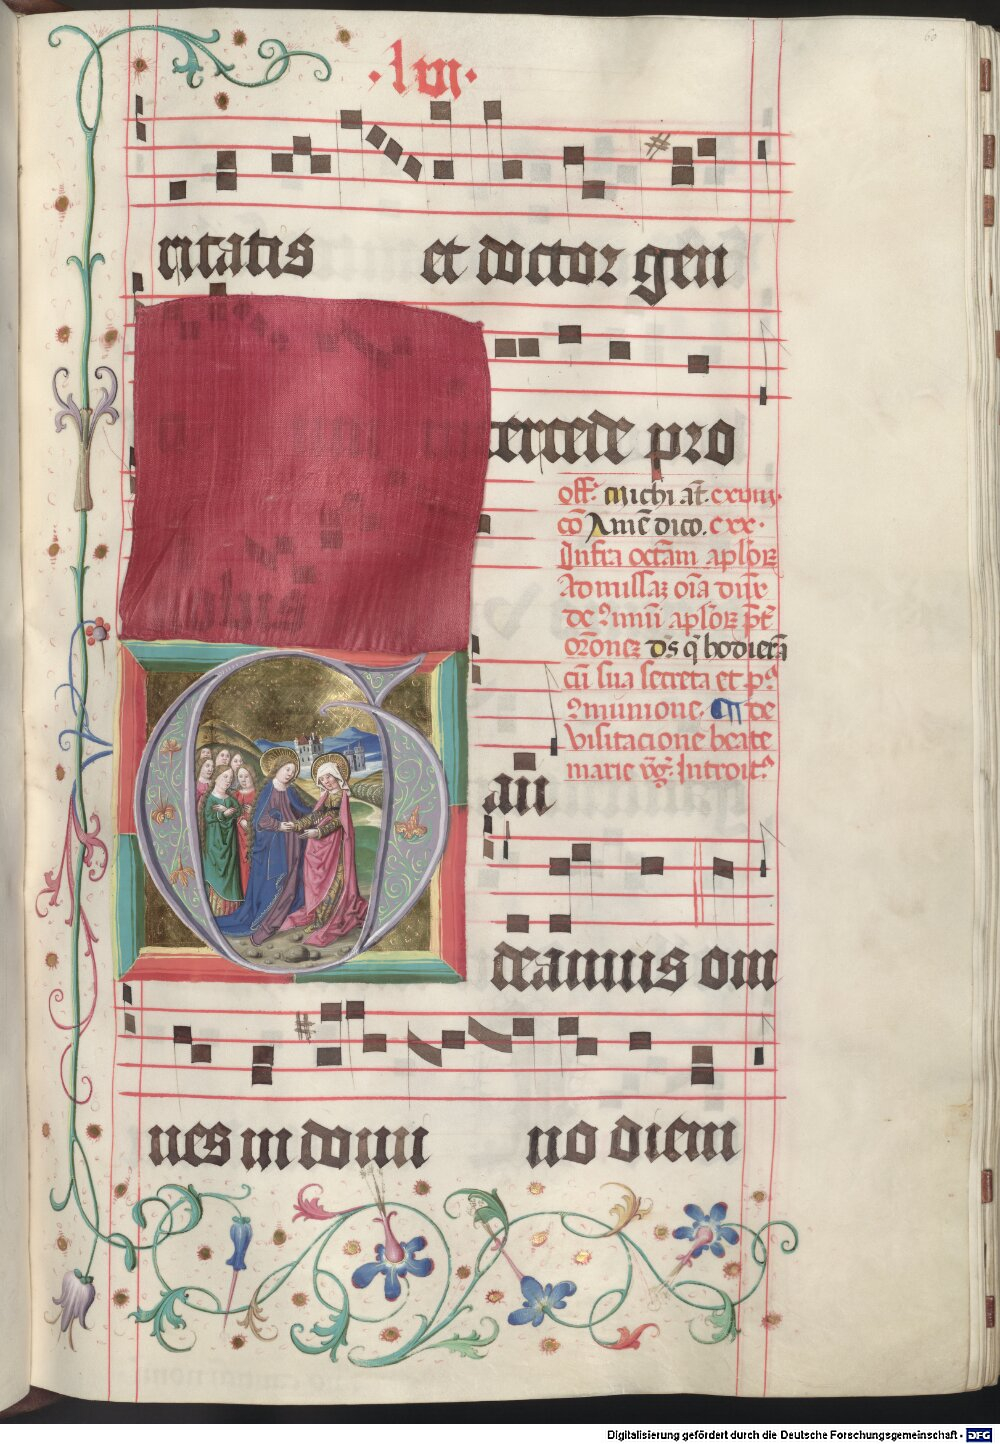 ·lvii·
60
ritatis et doctor gen
tercede pro
Off. Michi at. cxviii.
cō Amē dico. cxx.
Infra octām aplōrꝫ
Ad missaꝫ oīa dnr̄
de ꝯmūi aplōrꝫ pt̄
orōneꝫ ds̄ q̄ hodiernā
cū sua secreta et pꝰ
ꝯmunione. ¶ de
visitacione beate
marie vg̃. Introitꝰ
Gau
deamus om
nes in domi no diem
Digitalisierung gefördert durch die Deutsche Forschungsgemeinschaft - DFG